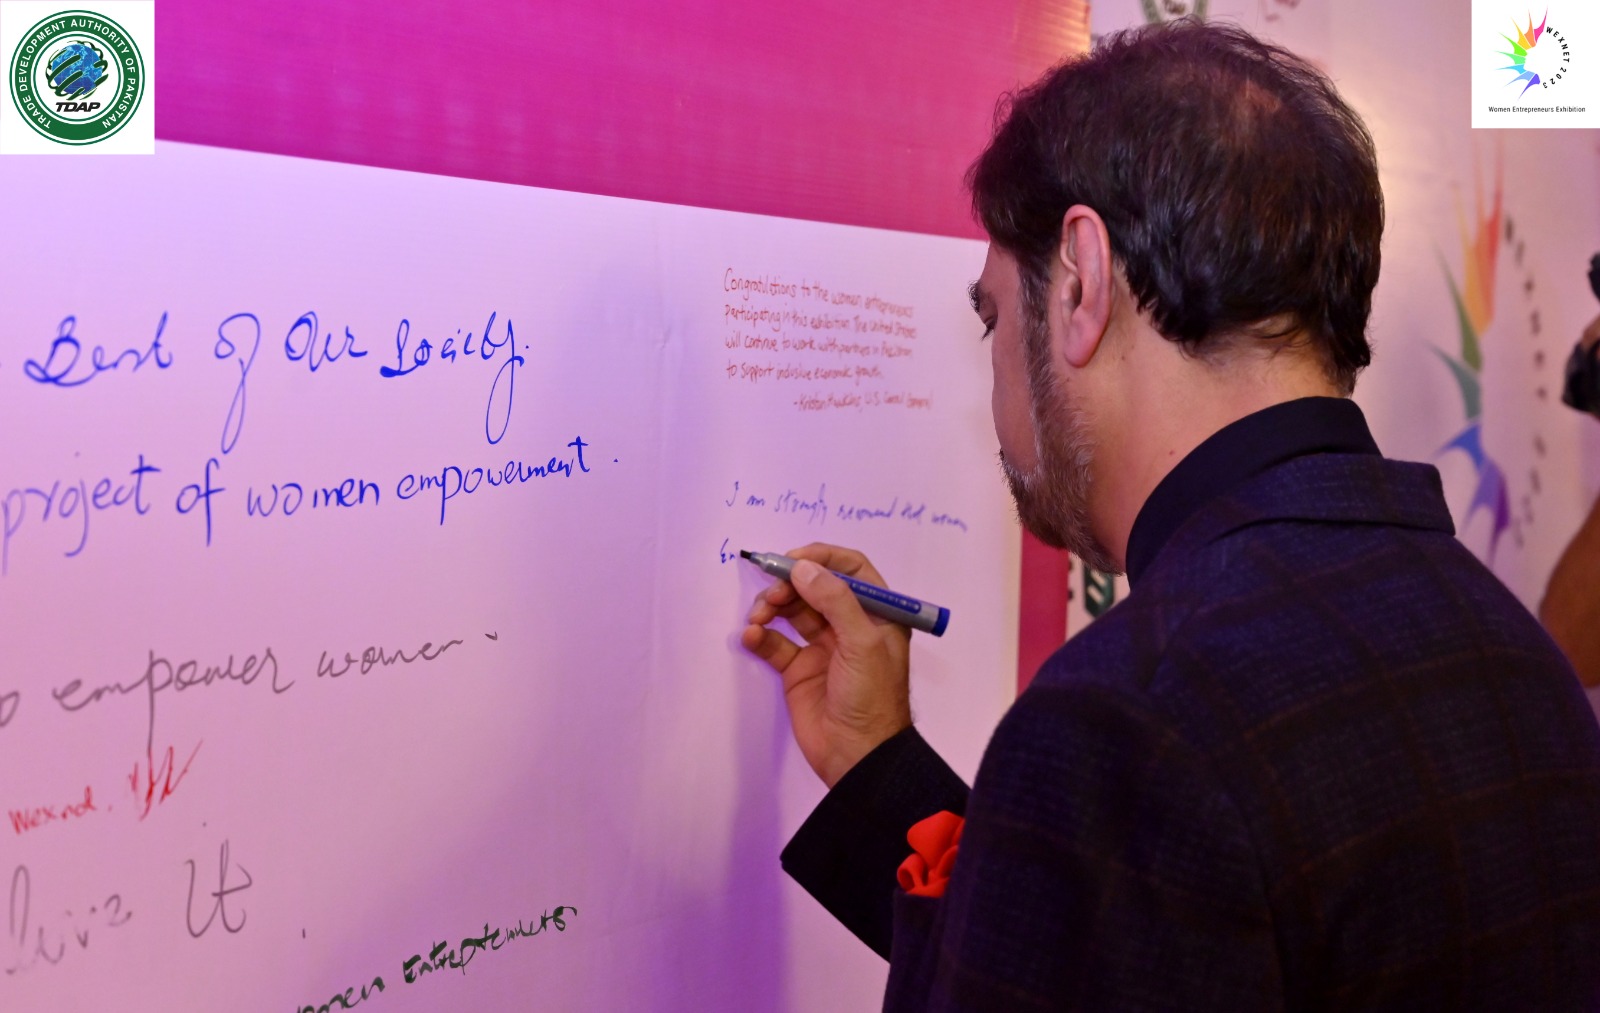 TRADE DEVELOPMENT AUTHORITY OF PAKISTAN
TDAP
WEXNET 2023
Women Entrepreneurs Exhibition
Best of Our Society.
project of women empowerment.
empower women.
Wexnet.
It
women Entrepreneurs
Congratulations to the women entrepreneurs
participating in this exhibition. The United States
will continue to work with partners in Pakistan
to support inclusive economic growth.
- Kristin Hawkins, U.S. Consul General
I am strongly recommend that women
En